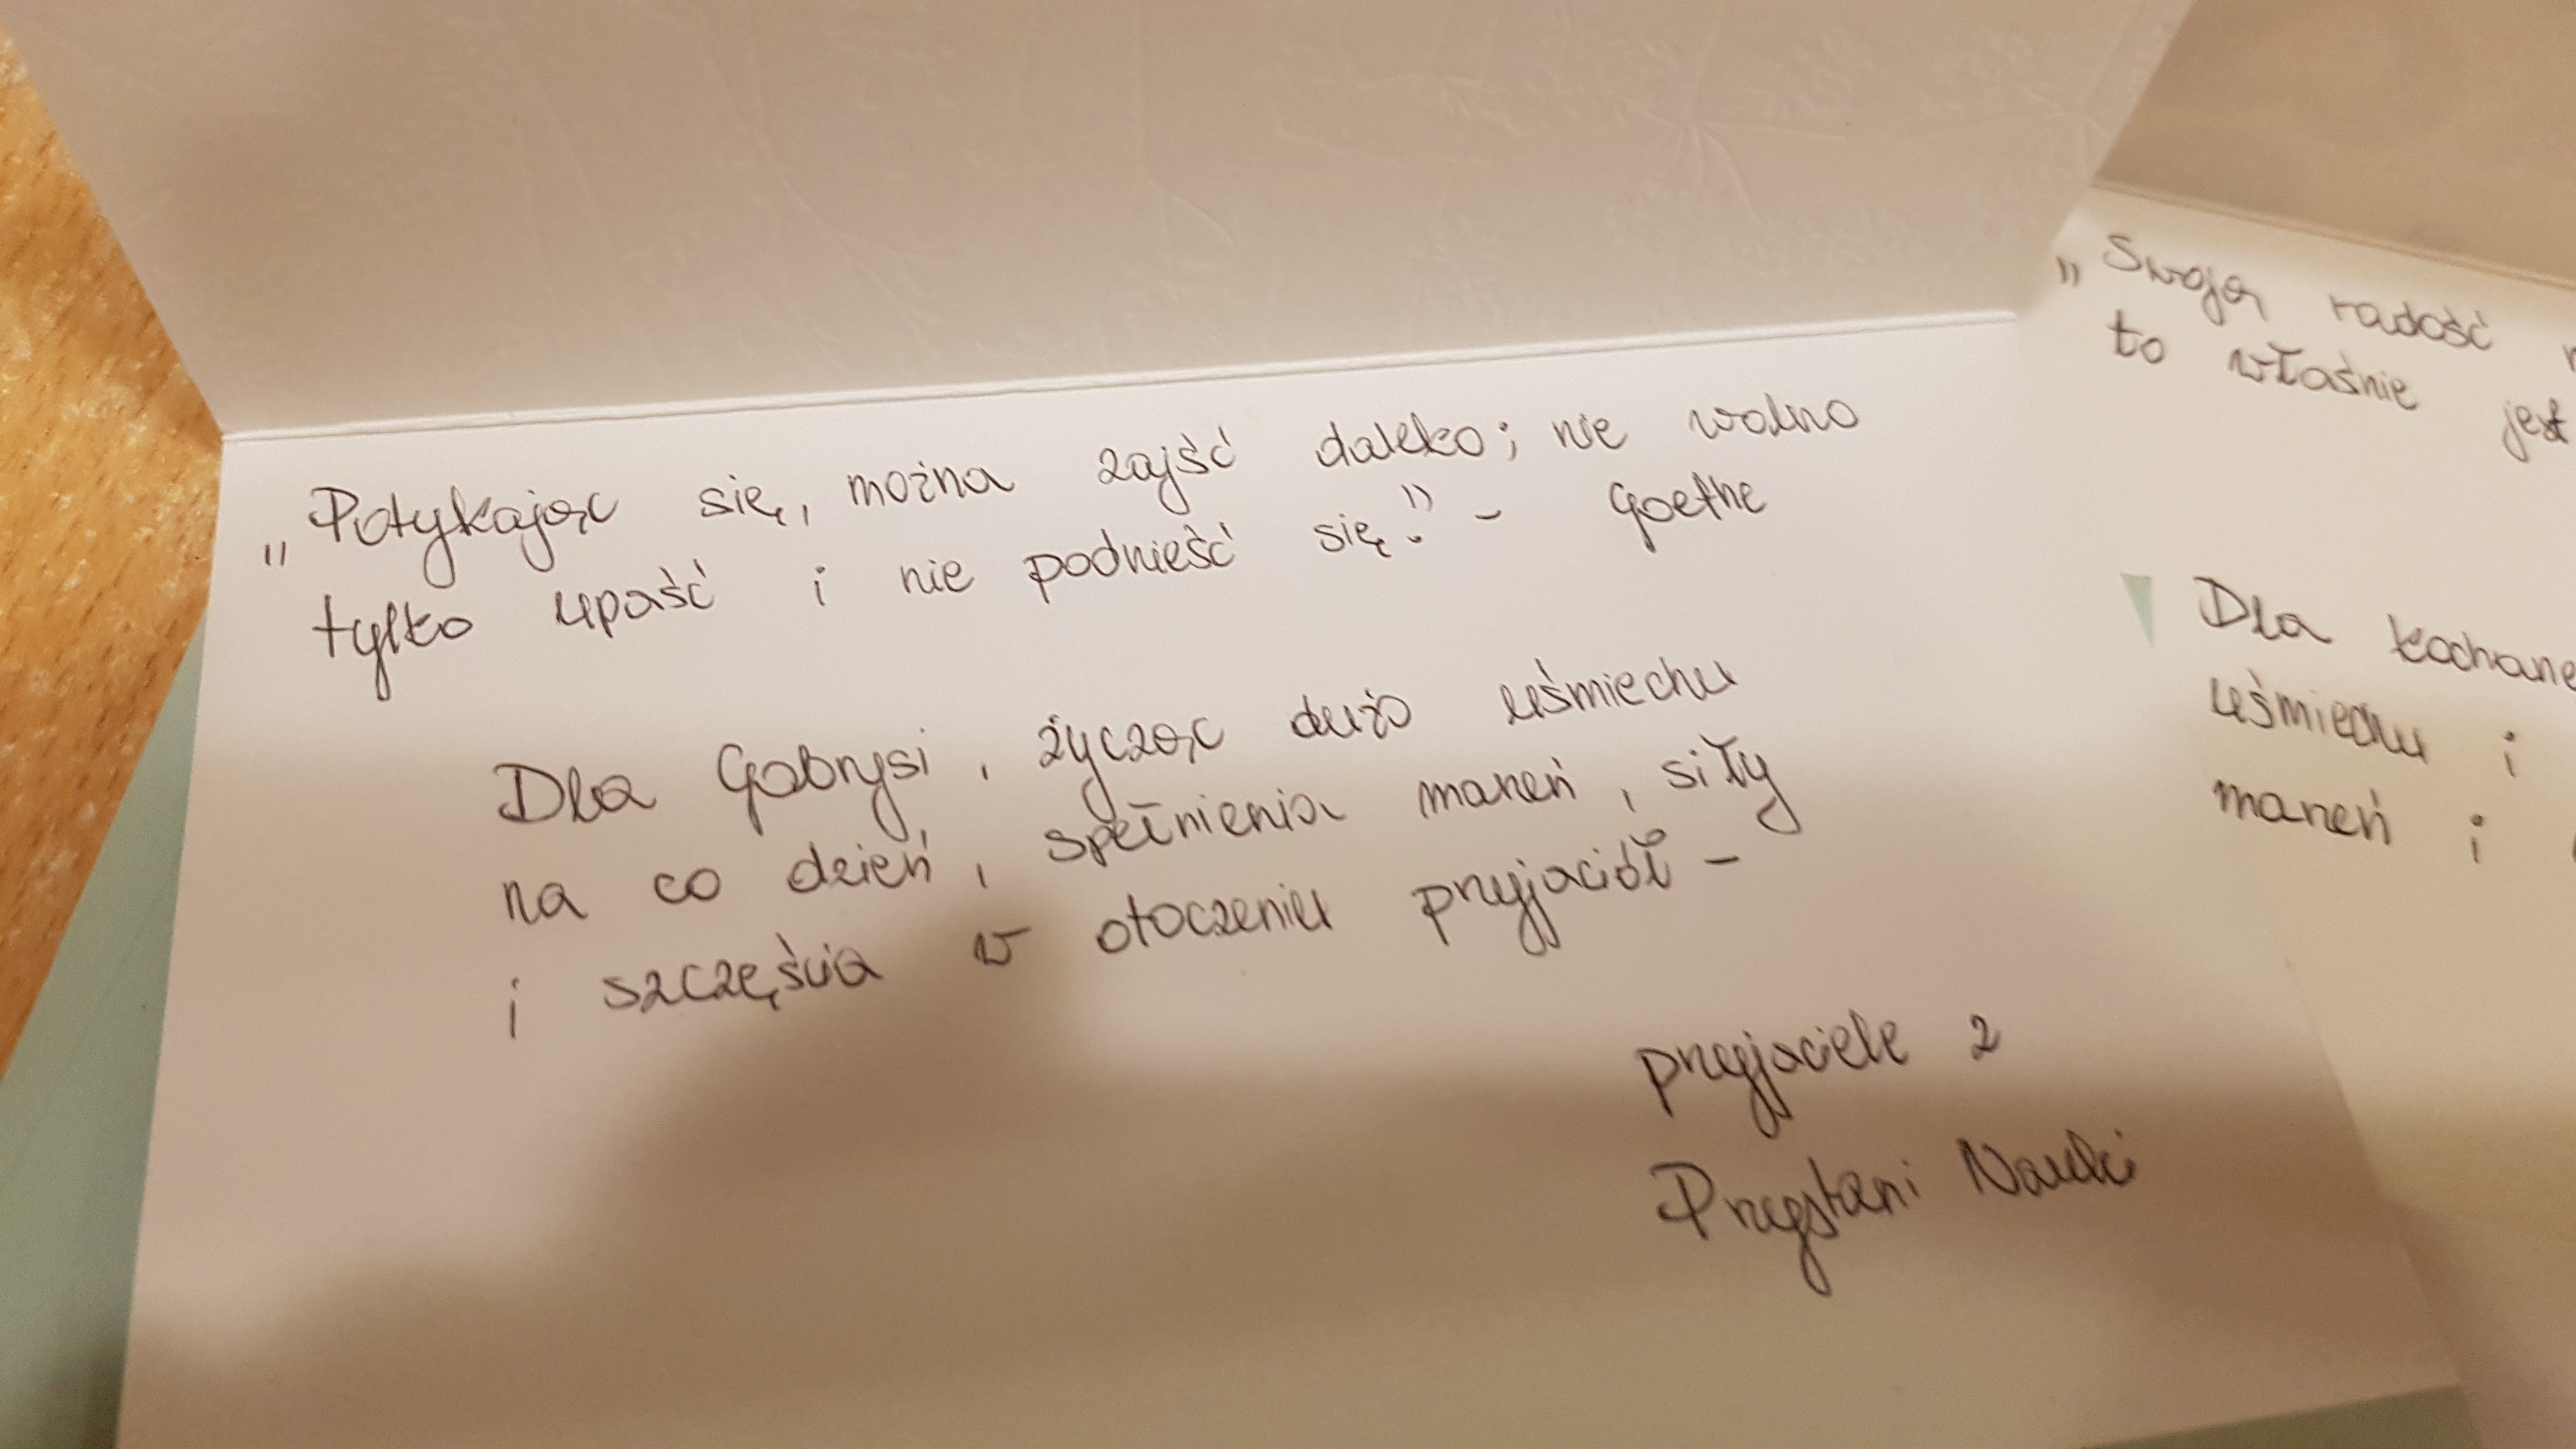 „Potykając się, można zajść daleko; nie wolno
tylko upaść i nie podnieść się." - Goethe
Dla Gabrysi, życząc dużo uśmiechu
na co dzień, spełnienia marzeń, siły
i szczęścia w otoczeniu przyjaciół -
przyjaciele z
Przystani Nauki
„Swoją radość
to właśnie jest
Dla kochane
uśmiechu i
marzeń i